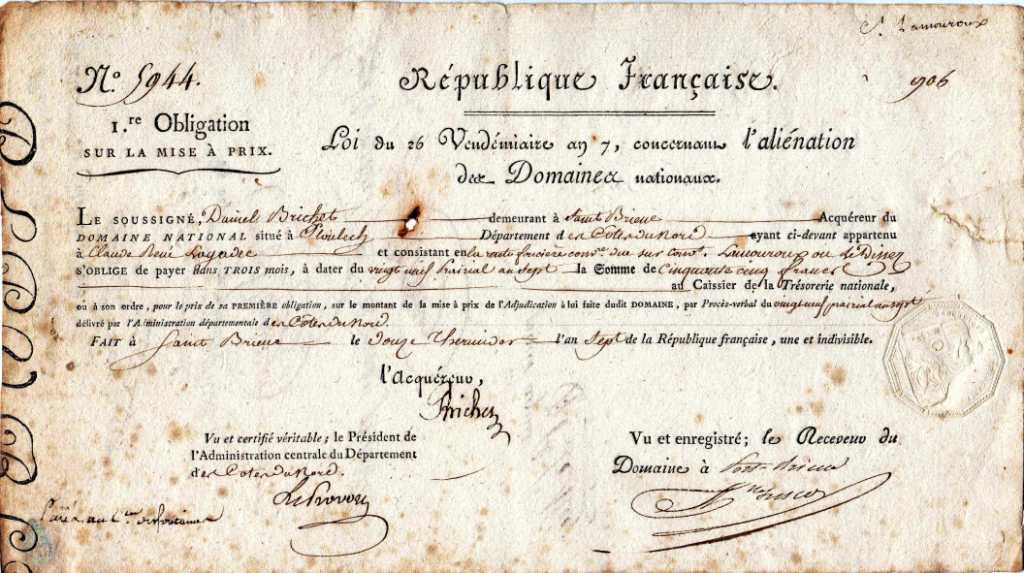 S. Lamouroux
N.° 5944.
République Française.
906
1.re Obligation
SUR LA MISE À PRIX.
Loi du 26 Vendémiaire an 7, concernant l'aliénation
des Domaines nationaux.
LE SOUSSIGNÉ, Daniel Brichet demeurant à Saint Brieuc Acquéreur du
DOMAINE NATIONAL situé à Ploulech Département des Cotes du Nord ayant ci-devant appartenu
à Claude René et consistant en la rente
S'OBLIGE de payer dans TROIS mois, à dater du vingt neuf prairial an sept la Somme de Cinquante cinq francs
au Caissier de la Trésorerie nationale,
ou à son ordre, pour le prix de sa PREMIÈRE obligation, sur le montant de la mise à prix de l'Adjudication à lui faite dudit DOMAINE, par Procès-verbal du vingt neuf prairial an sept
délivré par l'Administration départementale des Cotes du Nord.
FAIT à Saint Brieuc le douze thermidor l'an Sept de la République française, une et indivisible.
l'Acquéreur,
Brichet
Vu et certifié véritable; le Président de
l'Administration centrale du Département
des Cotes du Nord.
Vu et enregistré; le Receveur du
Domaine à Port-Brieuc